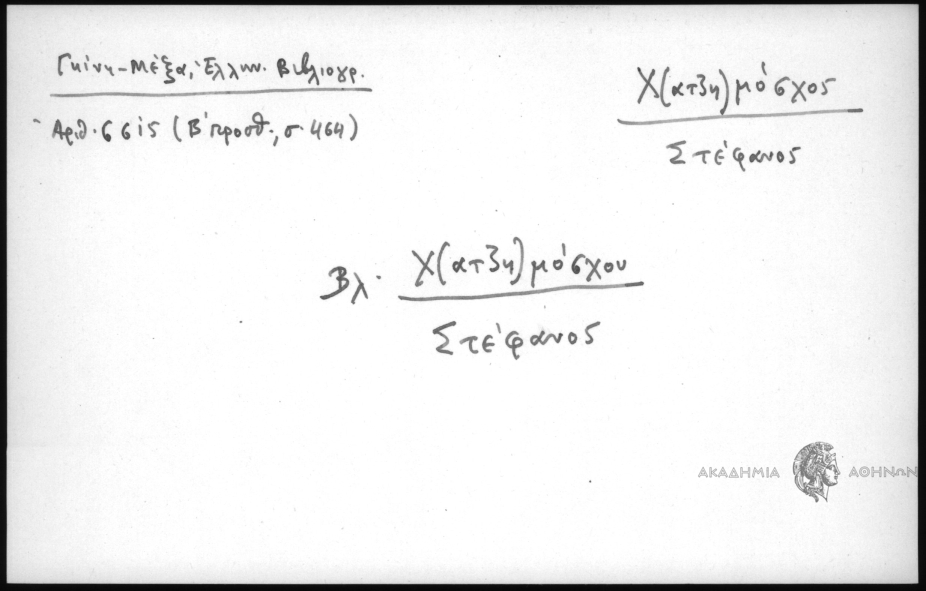 Γκίνη-Μέξα, Ἑλλην. Βιβλιογρ.
Ἀριθ. 6615 (Β΄ προσθ., σ. 464)
Χ(ατζη)μόσχος
Στέφανος
Βλ. Χ(ατζη)μόσχου
Στέφανος
ΑΚΑΔΗΜΙΑ ΑΘΗΝΩΝ